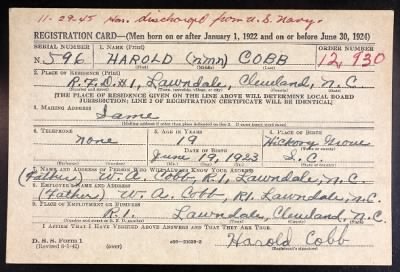 11-29-45 Hon. discharged from U.S. Navy.
REGISTRATION CARD—(Men born on or after January 1, 1922 and on or before June 30, 1924)
SERIAL NUMBER 1. NAME (Print) ORDER NUMBER
N 596 HAROLD (nmn) COBB 12,930
(First) (Middle) (Last)
2. PLACE OF RESIDENCE (Print)
R.F.D.#1, Lawndale, Cleveland, N.C.
(Number and street) (Town, township, village, or city) (County) (State)
[THE PLACE OF RESIDENCE GIVEN ON THE LINE ABOVE WILL DETERMINE LOCAL BOARD
JURISDICTION; LINE 2 OF REGISTRATION CERTIFICATE WILL BE IDENTICAL]
3. MAILING ADDRESS
Same
4. TELEPHONE 5. AGE IN YEARS 6. PLACE OF BIRTH
none 19 Hickory Grove
DATE OF BIRTH
June 19, 1923 S.C.
7. NAME AND ADDRESS OF PERSON WHO WILL ALWAYS KNOW YOUR ADDRESS
(Father) W. A. Cobb, R.1, Lawndale, N.C.
8. EMPLOYER'S NAME AND ADDRESS
(Father) W. A. Cobb, R1. Lawndale, N.C.
9. PLACE OF EMPLOYMENT OR BUSINESS
R.1. Lawndale, Cleveland, N.C.
(Number and street or R. F. D. number) (Town) (County) (State)
I AFFIRM THAT I HAVE VERIFIED ABOVE ANSWERS AND THAT THEY ARE TRUE.
D. S. S. Form 1
Harold Cobb
(Registrant's signature)